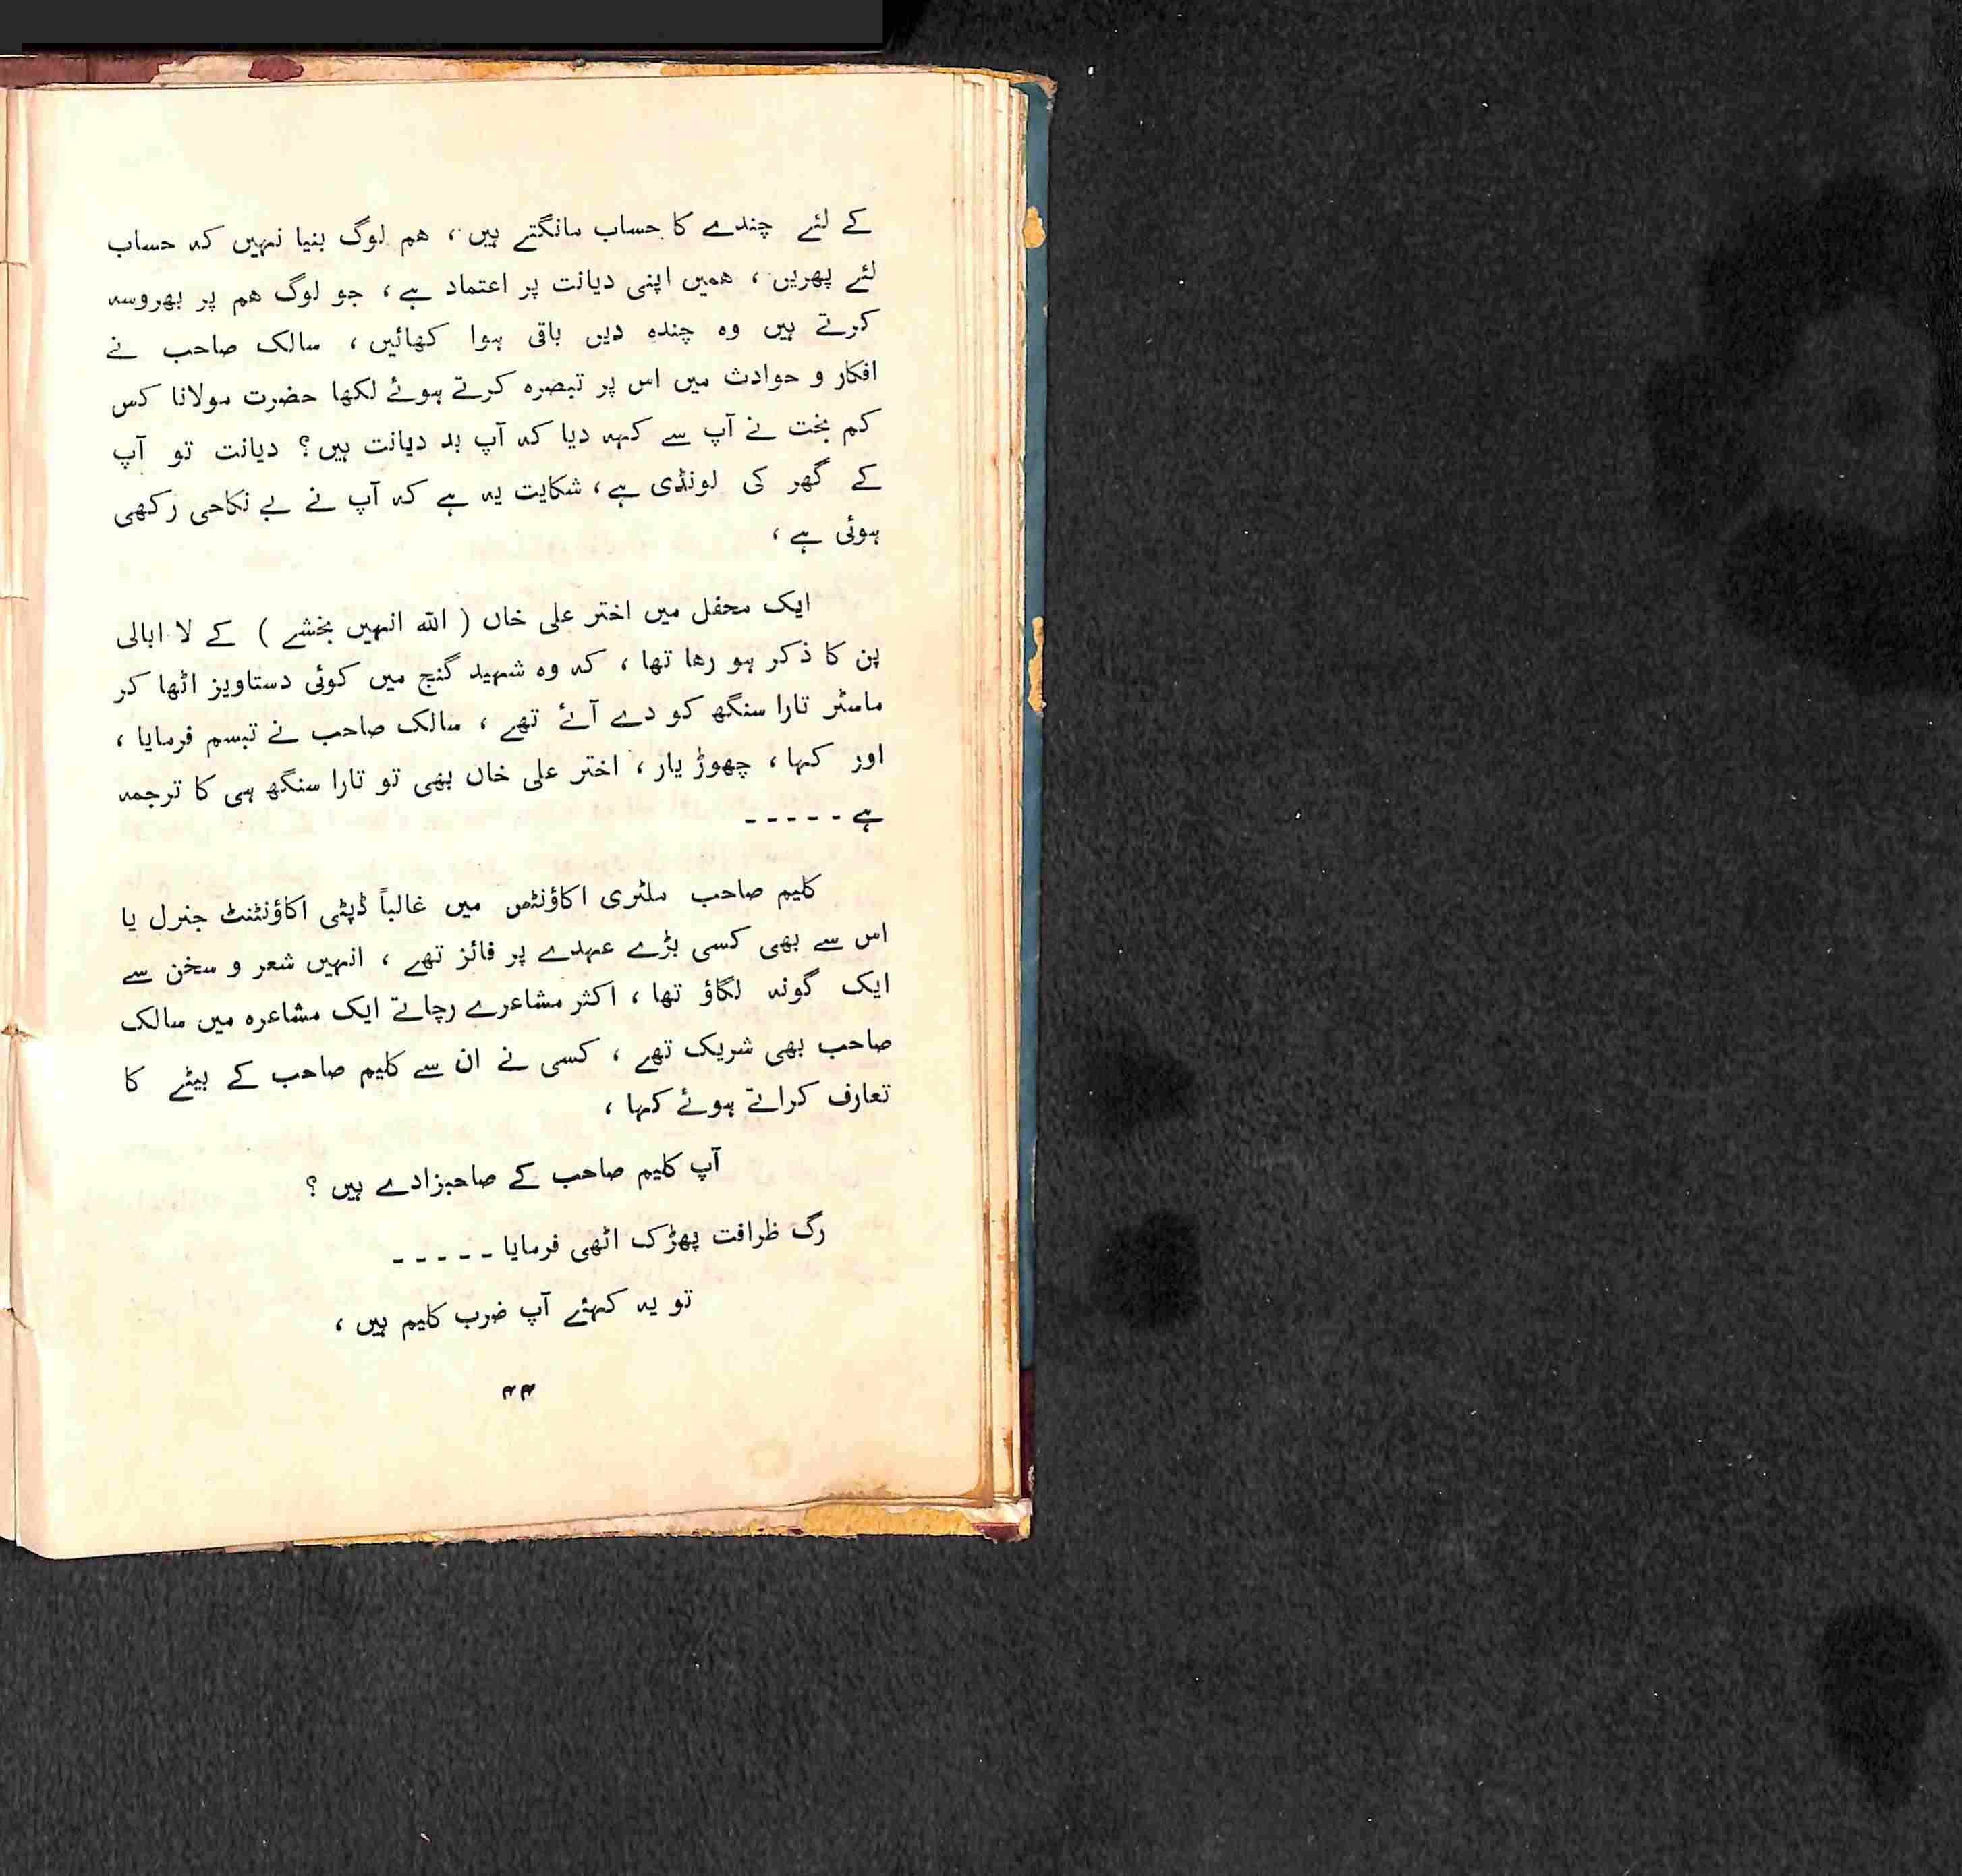 کے لئے چندے کا حساب مانگتے ہیں، هم لوگ بنیا نہیں کہ حساب
لئے پھریں ، همیں اپنی دیانت پر اعتماد ہے، جو لوگ هم پر بھروسہ
کرتے ہیں وہ چندہ دیں باقی ہوا کھائیں، سالک صاحب نے
افکار و حوادث میں اس پر تبصرہ کرتے ہوئے لکھا حضرت مولانا کس
کم بخت نے آپ سے کہہ دیا کہ آپ بد دیانت ہیں؟ دیانت تو آپ
کے گھر کی لونڈی ہے، شکایت یہ ہے کہ آپ نے بے نکاحی رکھی
ہوئی ہے ،
ایک محفل میں اختر علی خاں ( اللہ انہیں بخشے ) کے لا ابالی
پن کا ذکر ہو رها تھا ، کہ وہ شہید گنج میں کوئی دستاویز اٹھا کر
ماسٹر تارا سنگھ کو دے آئے تھے ، سالک صاحب نے تبسم فرمایا ،
اور کہا ، چھوڑ یار ، اختر علی خاں بھی تو تارا سنگھ ہی کا ترجمہ
ہے - - - - -
کلیم صاحب ملٹری اکاؤنٹس میں غالباً ڈپٹی اکاؤنٹنٹ جنرل یا
اس سے بھی کسی بڑے عہدے پر فائز تھے ، انہیں شعر و سخن سے
ایک گونہ لگاؤ تھا ، اکثر مشاعرے رچاتے ایک مشاعرہ میں سالک
صاحب بھی شریک تھے ، کسی نے ان سے کلیم صاحب کے بیٹے کا
تعارف کراتے ہوئے کہا ،
آپ کلیم صاحب کے صاحبزادے ہیں ؟
رگ ظرافت پھڑک اٹھی فرمایا - - - - -
تو یہ کہئے آپ ضرب کلیم ہیں ،
۴۴